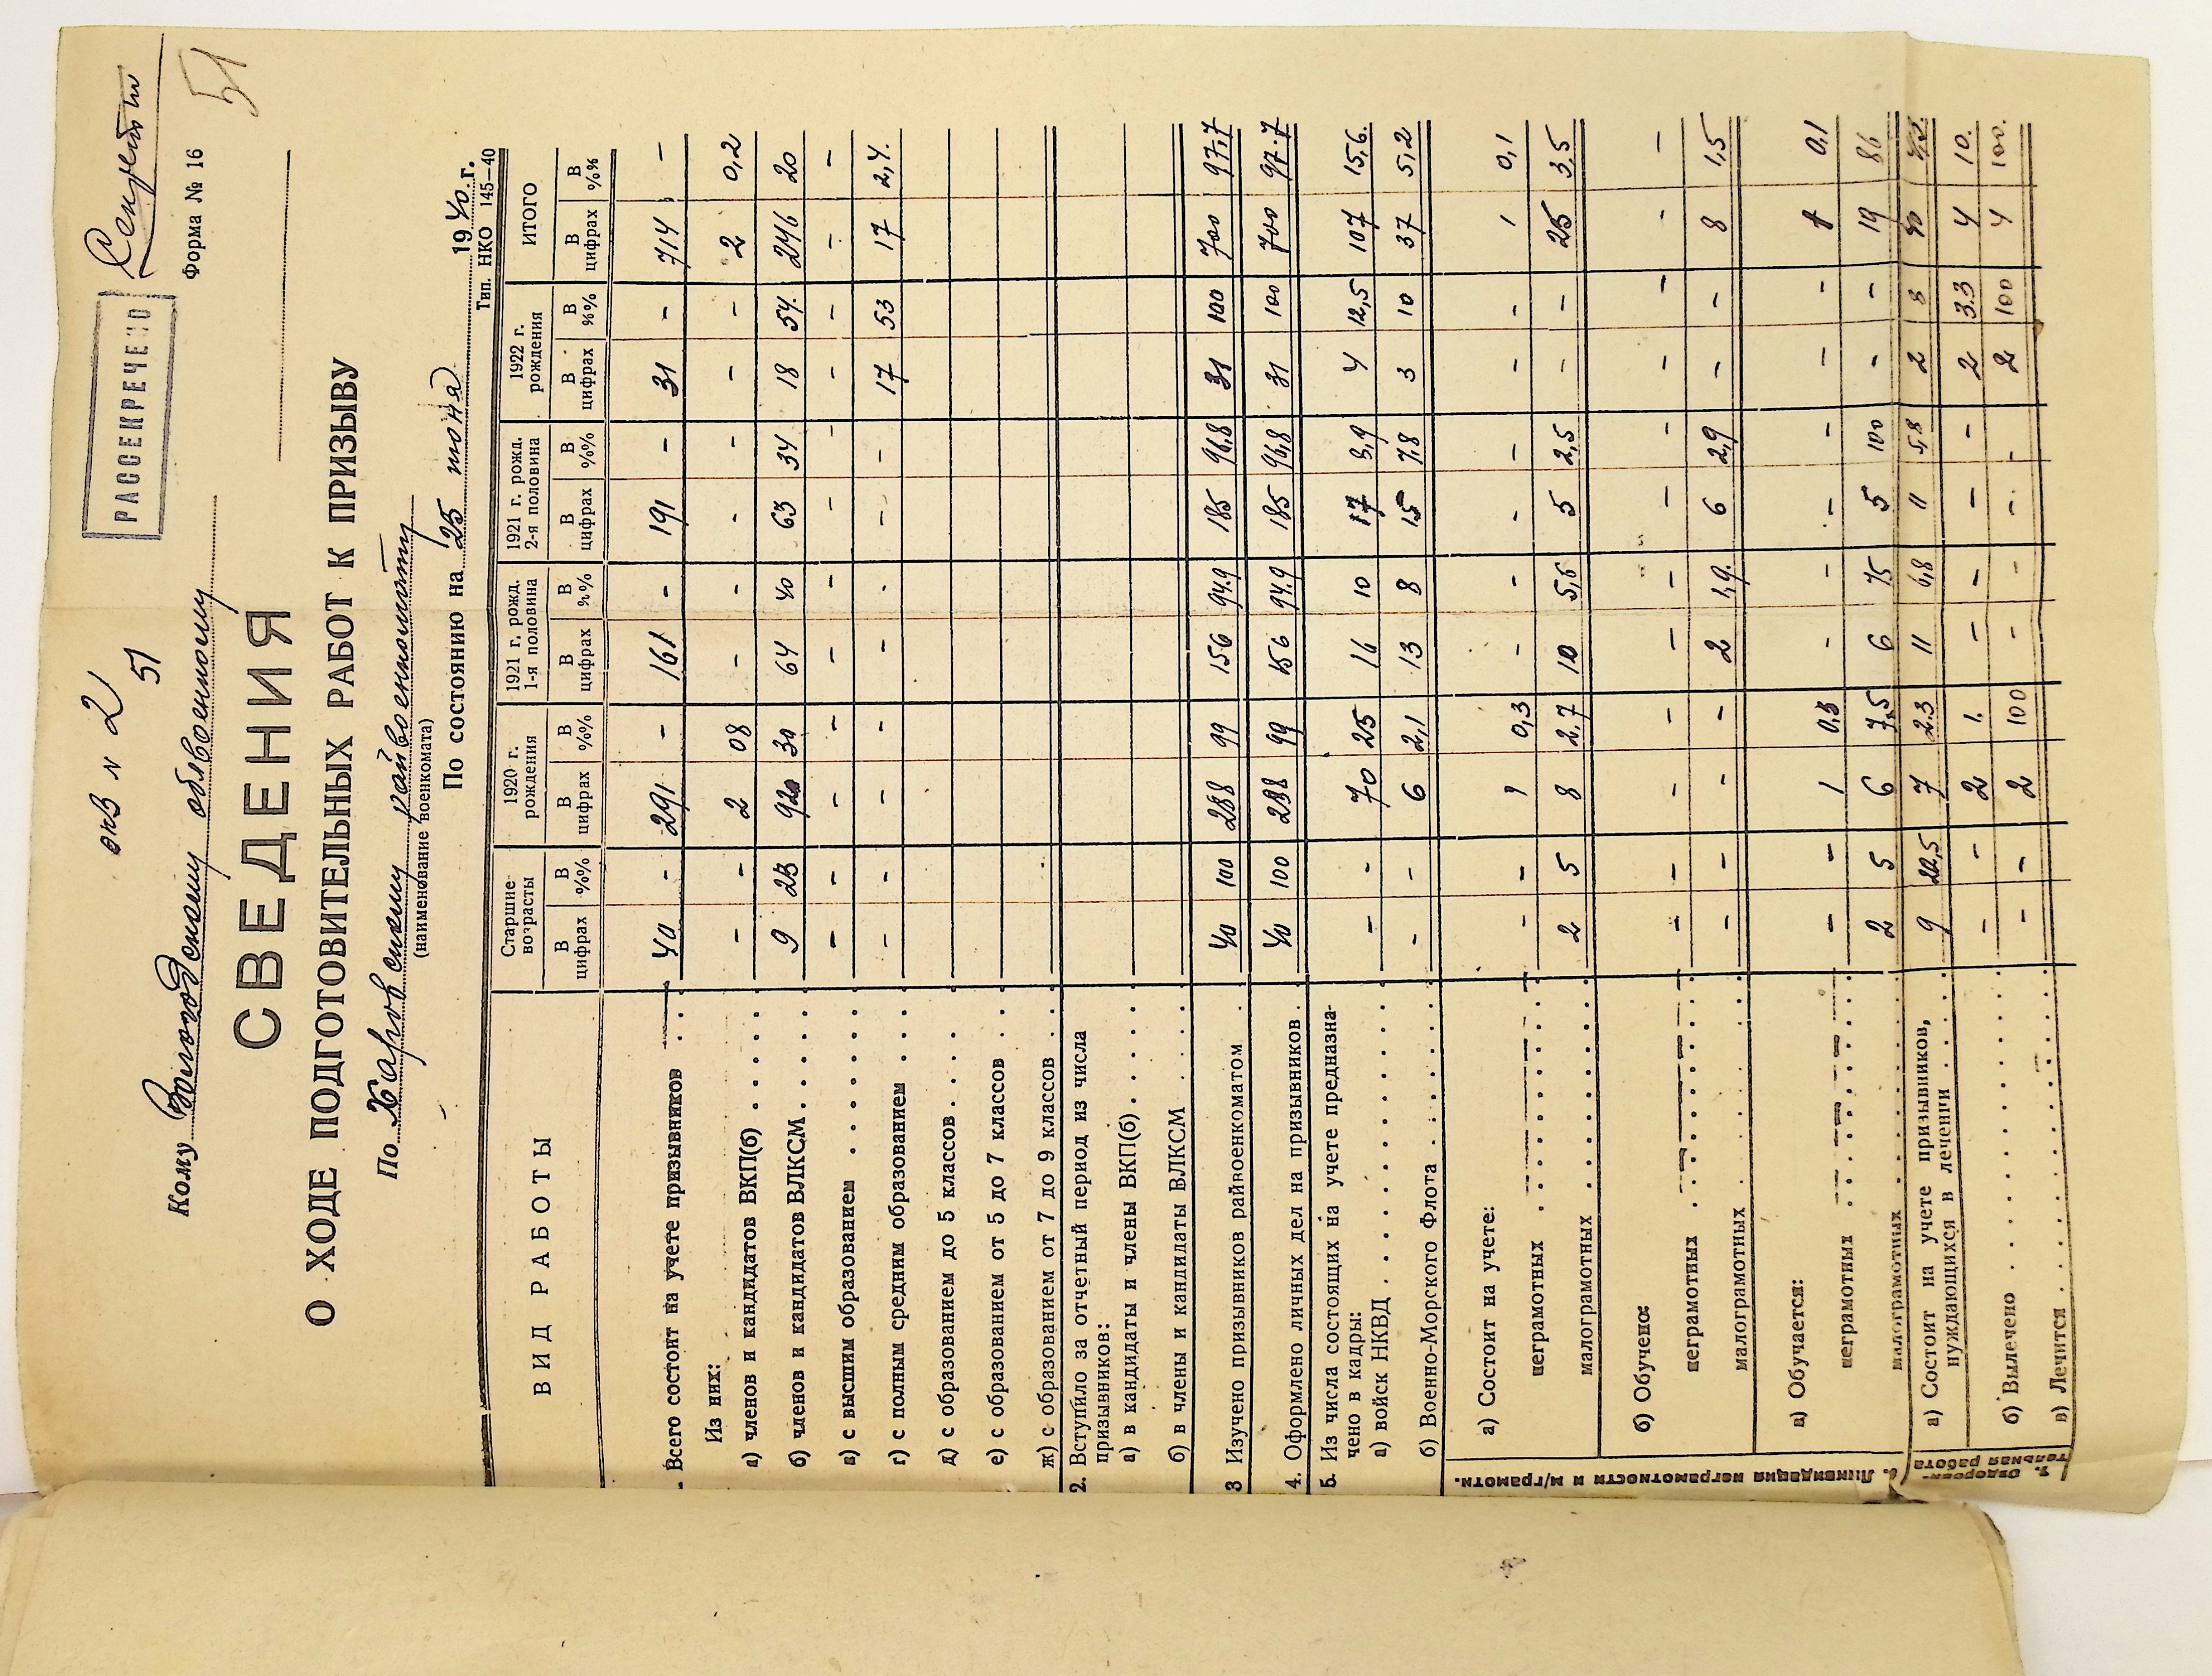 Секретно
РАССЕКРЕЧЕНО
Форма № 16
51
экз № 2
51
Кому Вологодскому облвоенкому
СВЕДЕНИЯ
О ХОДЕ ПОДГОТОВИТЕЛЬНЫХ РАБОТ К ПРИЗЫВУ
По Харовскому райвоенкомату
(наименование военкомата)
По состоянию на 25 июня 1940 г.
Тип. НКО 145—40
ВИД РАБОТЫ | Старшие возрасты | 1920 г. рождения | 1921 г. рожд. 1-я половина | 1921 г. рожд. 2-я половина | 1922 г. рождения | ИТОГО
В цифрах | В %% | В цифрах | В %% | В цифрах | В %% | В цифрах | В %% | В цифрах | В %% | В цифрах | В %%
. Всего состоит на учете призывников . . 40 - 291 - 161 - 191 - 31 - 714 -
Из них:
а) членов и кандидатов ВКП(б) . . . . . - - 2 08 - - - - - - 2 0,2
б) членов и кандидатов ВЛКСМ . . . . 9 23 92 30 64 40 63 34 18 54. 246 20
в) с высшим образованием . . . . . . . - - - - - - - - - - - -
г) с полным средним образованием . . . - - - - - - - - 17 53 17 2,4.
д) с образованием до 5 классов . . . .
е) с образованием от 5 до 7 классов . .
ж) с образованием от 7 до 9 классов . .
2. Вступило за отчетный период из числа
призывников:
а) в кандидаты и члены ВКП(б) . . . . .
б) в члены и кандидаты ВЛКСМ . . . .
3 Изучено призывников райвоенкоматом . 40 100 288 99 156 94.9 185 96,8 31 100 700 97,7
4. Оформлено личных дел на призывников . 40 100 288 99 156 94.9 185 96,8 31 100 700 97.7
5. Из числа состоящих на учете предназна-
чено в кадры:
а) войск НКВД . . . . . . . . . . - - 70 25 16 10 17 3,9 4 12,5 107 15,6.
б) Военно-Морского Флота . . . . . - - 6 2,1 13 8 15 7,8 3 10 37 5,2
6. Ликвидация неграмотности и м/грамотн.
а) Состоит на учете:
неграмотных . . . . . . . - - 1 0,3 - - - - - - 1 0,1
малограмотных . . . . . . 2 5 8 2.7 10 5,6 5 2,5 - - 25 3,5
б) Обучено:
неграмотных . . . . . . . - - - - - - - - - - - -
малограмотных . . . . . . - - - - 2 1,9. 6 2,9 - - 8 1,5
в) Обучается:
неграмотных . . . . . . . - - 1 0.3 - - - - - - 1 0,1
малограмотных . . . . . . 2 5 6 7,5 6 75 5 100 - - 19 86
7. Оздорови-
тельная работа
а) Состоит на учете призывников,
нуждающихся в лечении . . . . . 9 22,5 7 2.3 11 6,8 11 5,8 2 3 40
б) Вылечено . . . . . . . . . . - - 2 1. - - - - 2 3.3 4 10.
в) Лечится . . . . . . . . . . - - 2 100 - - - - 2 100 4 100.